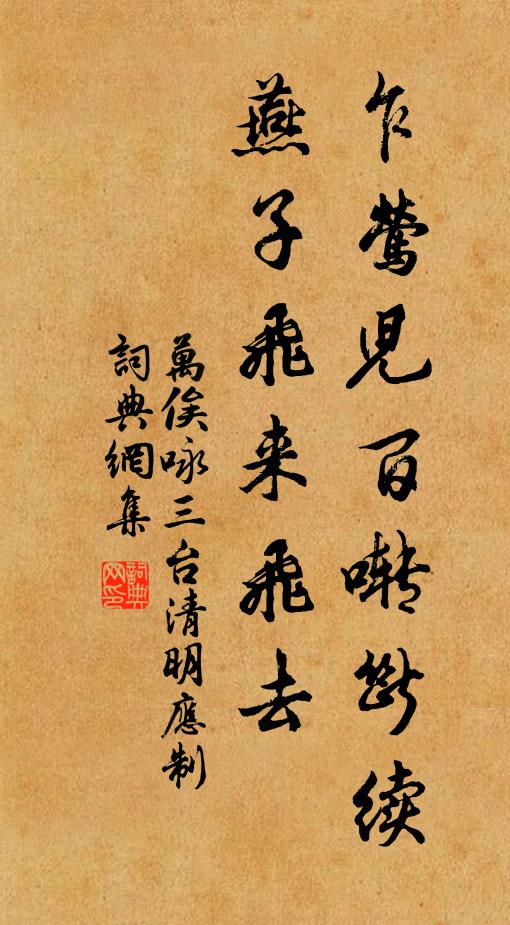 乍鶯兒百囀斷续
燕子飛来飛去
萬俟咏三台清明應制
詞典網集
詞典網印